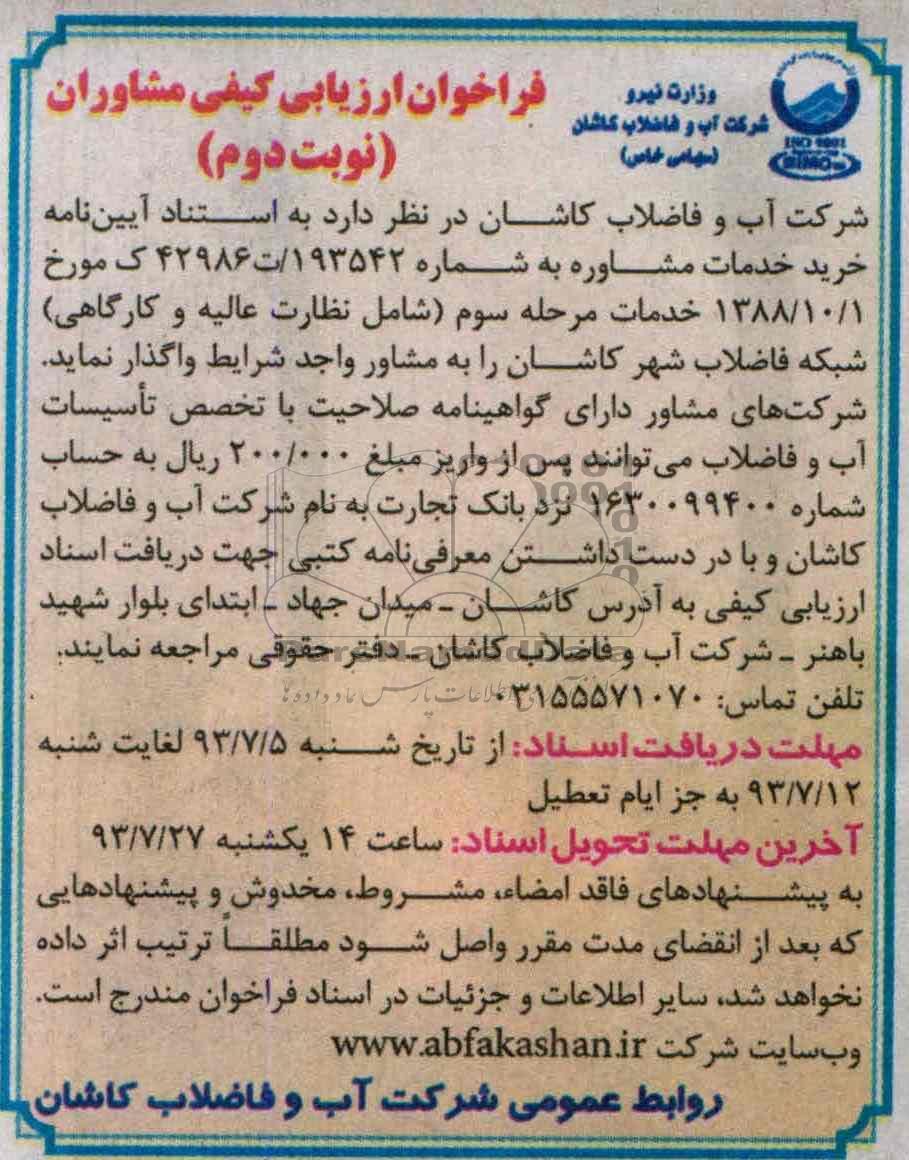 وزارت نیرو
شرکت آب و فاضلاب کاشان
(سهامی خاص)
ISO 9001
فراخوان ارزیابی کیفی مشاوران
(نوبت دوم)
شرکت آب و فاضلاب کاشان در نظر دارد به استناد آیین‌نامه
خرید خدمات مشاوره به شماره ۱۹۳۵۴۲/ت۴۲۹۸۶ ک مورخ
۱۳۸۸/۱۰/۱ خدمات مرحله سوم (شامل نظارت عالیه و کارگاهی)
شبکه فاضلاب شهر کاشان را به مشاور واجد شرایط واگذار نماید.
شرکت‌های مشاور دارای گواهینامه صلاحیت با تخصص تأسیسات
آب و فاضلاب می‌توانند پس از واریز مبلغ ۲۰۰/۰۰۰ ریال به حساب
شماره ۱۶۳۰۰۹۹۴۰۰ نزد بانک تجارت به نام شرکت آب و فاضلاب
کاشان و با در دست داشتن معرفی‌نامه کتبی جهت دریافت اسناد
ارزیابی کیفی به آدرس کاشان ـ میدان جهاد ـ ابتدای بلوار شهید
باهنر ـ شرکت آب و فاضلاب کاشان ـ دفتر حقوقی مراجعه نمایند.
تلفن تماس: ۰۳۱۵۵۵۷۱۰۷۰
مهلت دریافت اسناد: از تاریخ شنبه ۹۳/۷/۵ لغایت شنبه
۹۳/۷/۱۲ به جز ایام تعطیل
آخرین مهلت تحویل اسناد: ساعت ۱۴ یکشنبه ۹۳/۷/۲۷
به پیشنهادهای فاقد امضاء، مشروط، مخدوش و پیشنهادهایی
که بعد از انقضای مدت مقرر واصل شود مطلقاً ترتیب اثر داده
نخواهد شد، سایر اطلاعات و جزئیات در اسناد فراخوان مندرج است.
وب‌سایت شرکت www.abfakashan.ir
روابط عمومی شرکت آب و فاضلاب کاشان